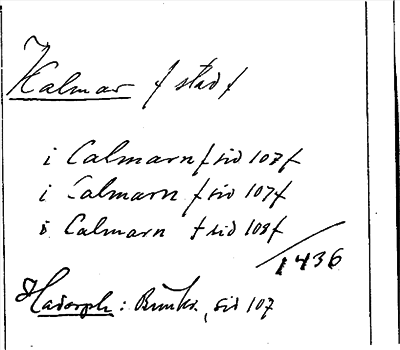 Kalmar / stad /
i Calmarn / sid 107 /
i Calmarn / sid 107 /
i Calmarn / sid 108 /
/1436
Hadorph: , sid 107